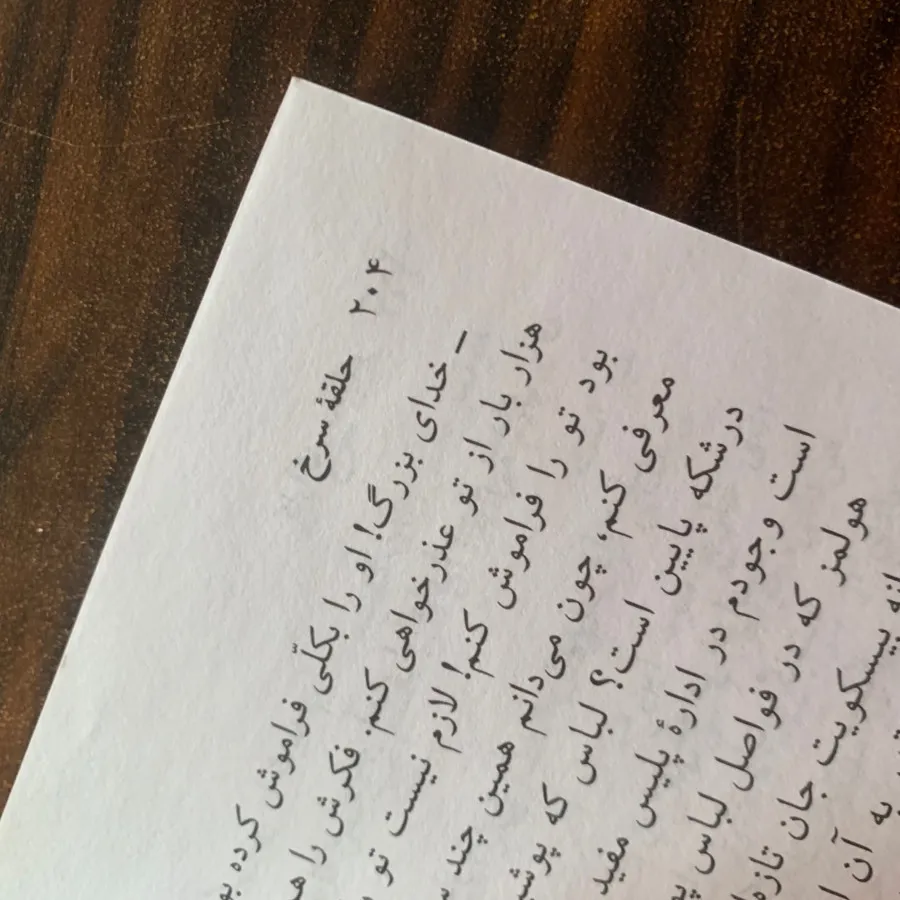 ۲۰۴ حلقهٔ سرخ
ـ خدای بزرگ! او را بکلّی فراموش کرده
هزار بار از تو عذرخواهی کنم. فکرش را
بود تو را فراموش کنم! لازم نیست تو
معرفی کنم، چون می‌دانم همین چند
درشکه پایین است؟ لباس که
است وجودم در ادارهٔ پلیس مفید
هولمز که در فواصل لباس
بیسکویت جان
به آن